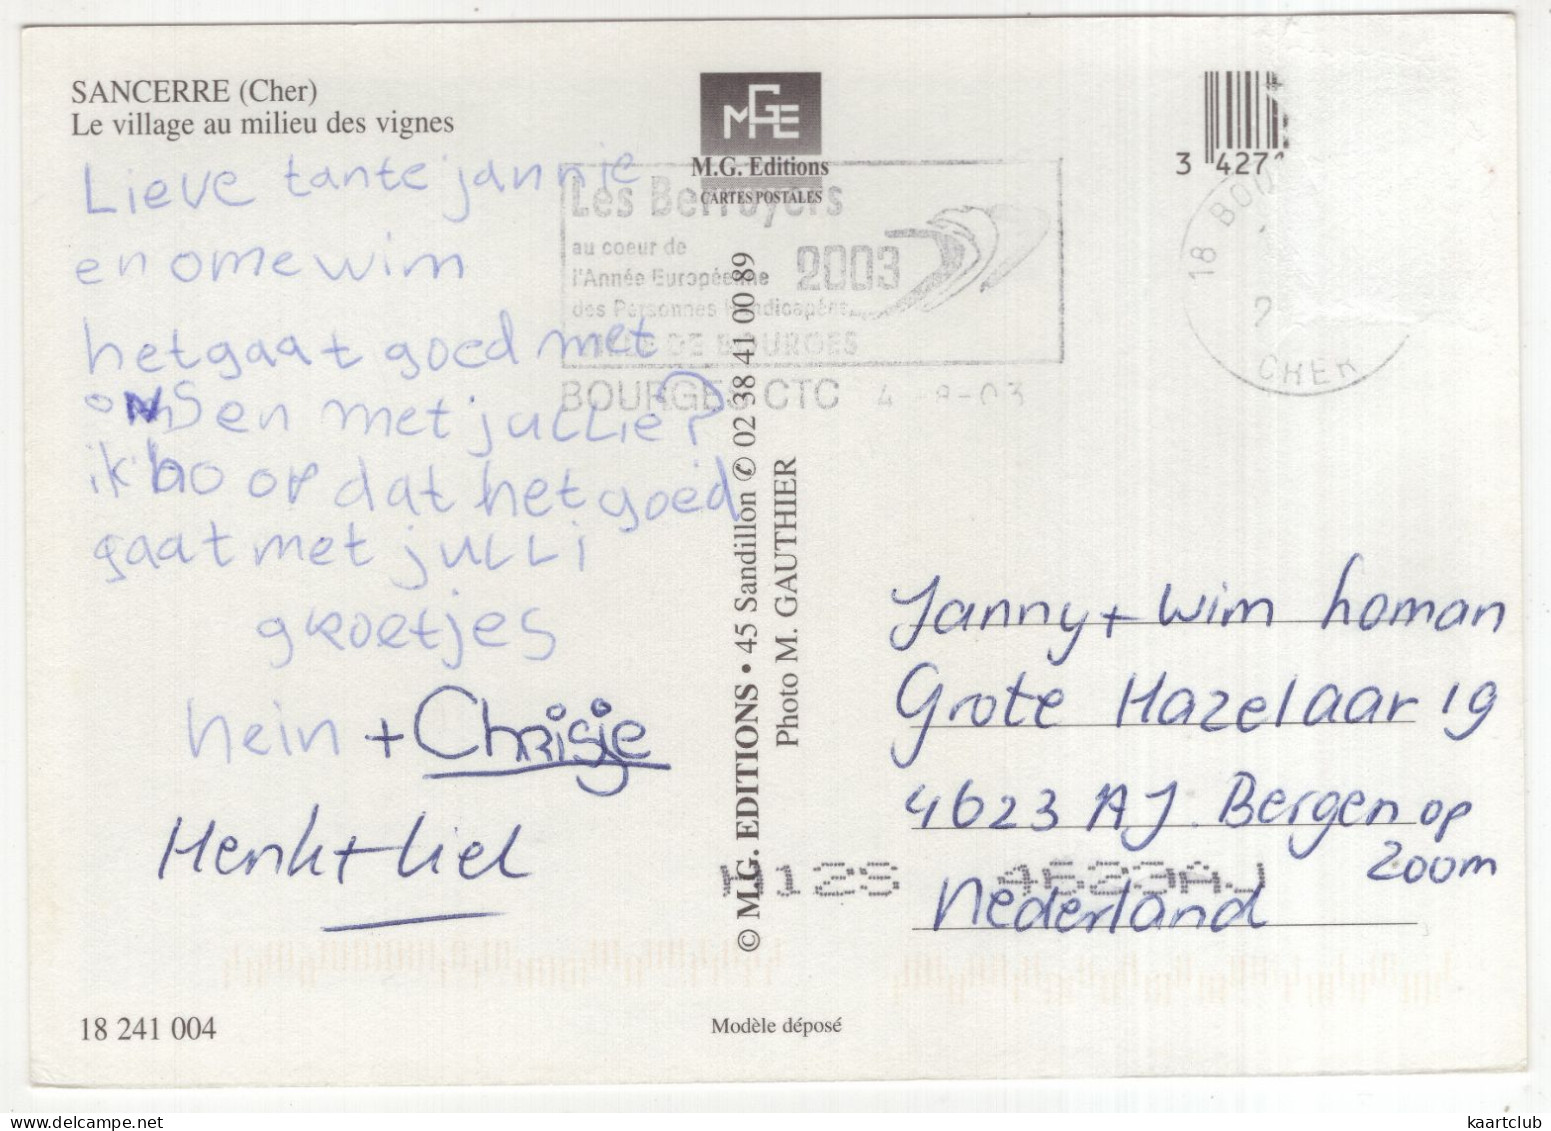 SANCERRE (Cher)
Le village au milieu des vignes
Lieve tante jannie
en ome wim
het gaat goed met
ons en met jullie?
ik ho op dat het goed
gaat met julli
groetjes
hein + Chrisje
Henk + liel
18 241 004
MGE
M.G. Editions
CARTES POSTALES
Les Berruyers
au coeur de
l'Année Européenne
des Personnes Handicapées
2003
VILLE DE BOURGES
BOURGES CTC 4-8-03
© M.G. EDITIONS • 45 Sandillon ✆ 02 38 41 00 89
Photo M. GAUTHIER
Modèle déposé
3 427
18 BOU
CHER
Janny + Wim homan
Grote Hazelaar 19
4623 AJ Bergen op
Zoom
Nederland
4623AJ
kaartclub